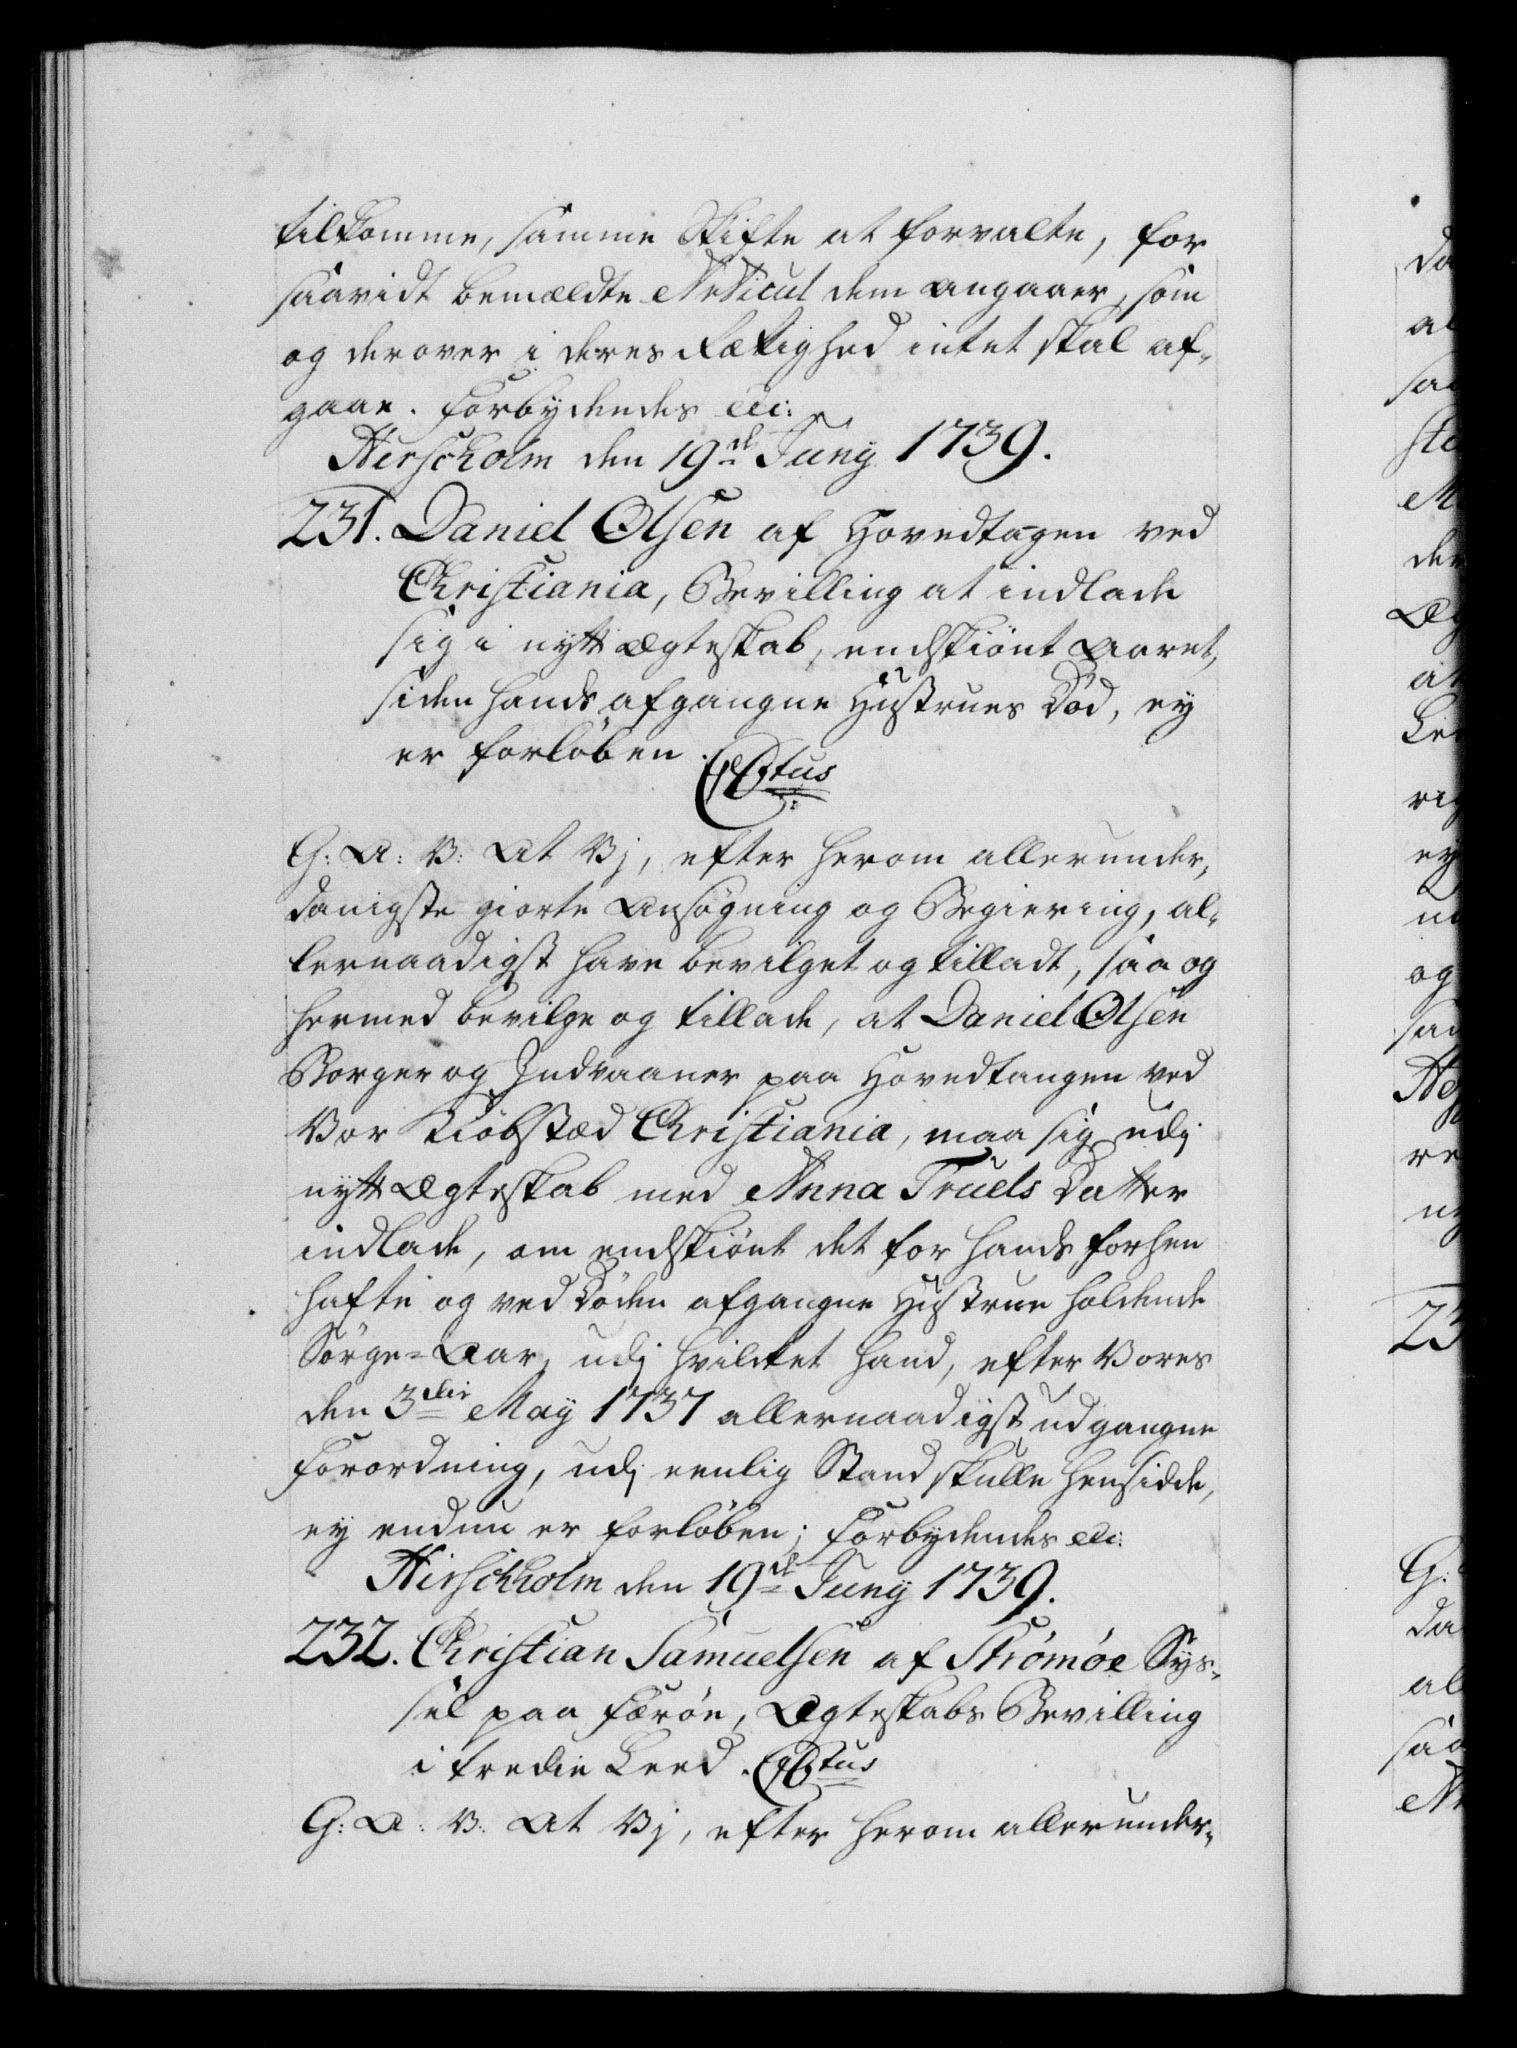 tilkomme, samme Skifte at forvalte, for
saavidt bemældte Articul dem angaaer, som
og derover i deres Rættighed intet skal af-
gaae. Forbydendes etc:
Hirschholm den 19de Juny 1739.
231. Daniel Olsen af Hovedtagen ved
Christiania, Bevilling at indlade
sig i nytt Ægteskab, endskiönt Aaret,
siden hands afgangne Hustrues Död, ey
er forlöben.
CStus
G: A: V: At Vj, efter herom allerunder-
danigste giorte Ansögning og Begiering, al-
lernaadigst have bevilget og tilladt, saa og
hermed bevilge og tillade, at Daniel Olsen
Borger og Indvaaner paa Hovedtangen ved
Vor Kiöbstæd Christiania, maa sig udj
nytt Ægteskab med Anna Truels Datter
indlade, om endskiönt det for hands forhen
hafte og ved Döden afgangne Hustrue holdende
Sörge-Aar, udj hvilcket hand, efter Vores
den 3die May 1737 allernaadigst udgangne
Forordning, udj eenlig Stand skulle hensidde,
ey endnu er forlöben; Forbydendes etc:
Hirschholm den 19de Juny 1739.
232. Christian Samuelsen af Strömöe Sys-
sel paa Færöe, Ægteskabs Bevilling
i tredie Leed. CStus
G: A: V: At Vj, efter herom allerunder-